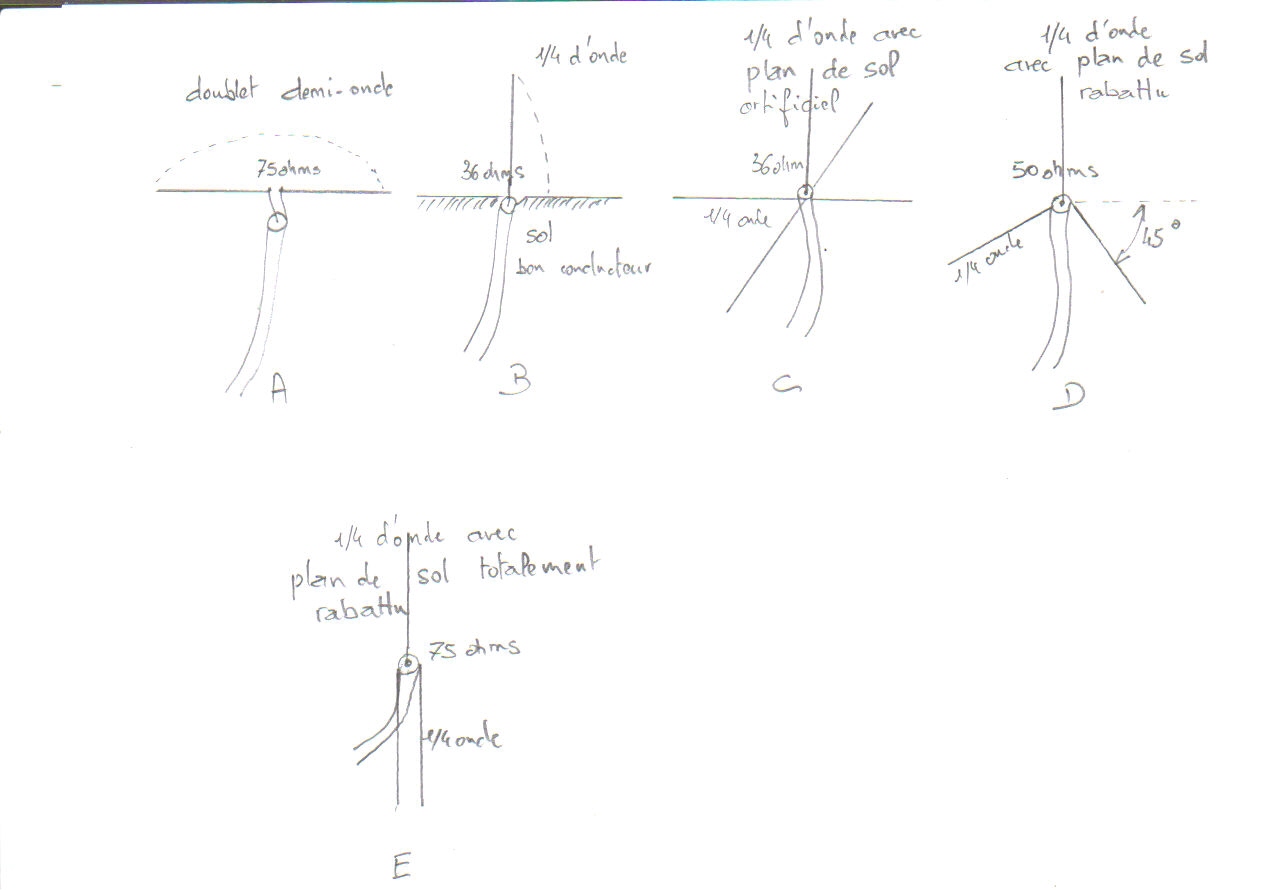 doublet demi-onde
75 ohms
A
1/4 d'onde
36 ohms
sol
bon conducteur
B
1/4 d'onde avec
plan de sol
artificiel
36 ohm
1/4 onde
C
1/4 d'onde
avec plan de sol
rabattu
50 ohms
45°
1/4 onde
D
1/4 d'onde avec
plan de sol totalement
rabattu
75 ohms
1/4 onde
E